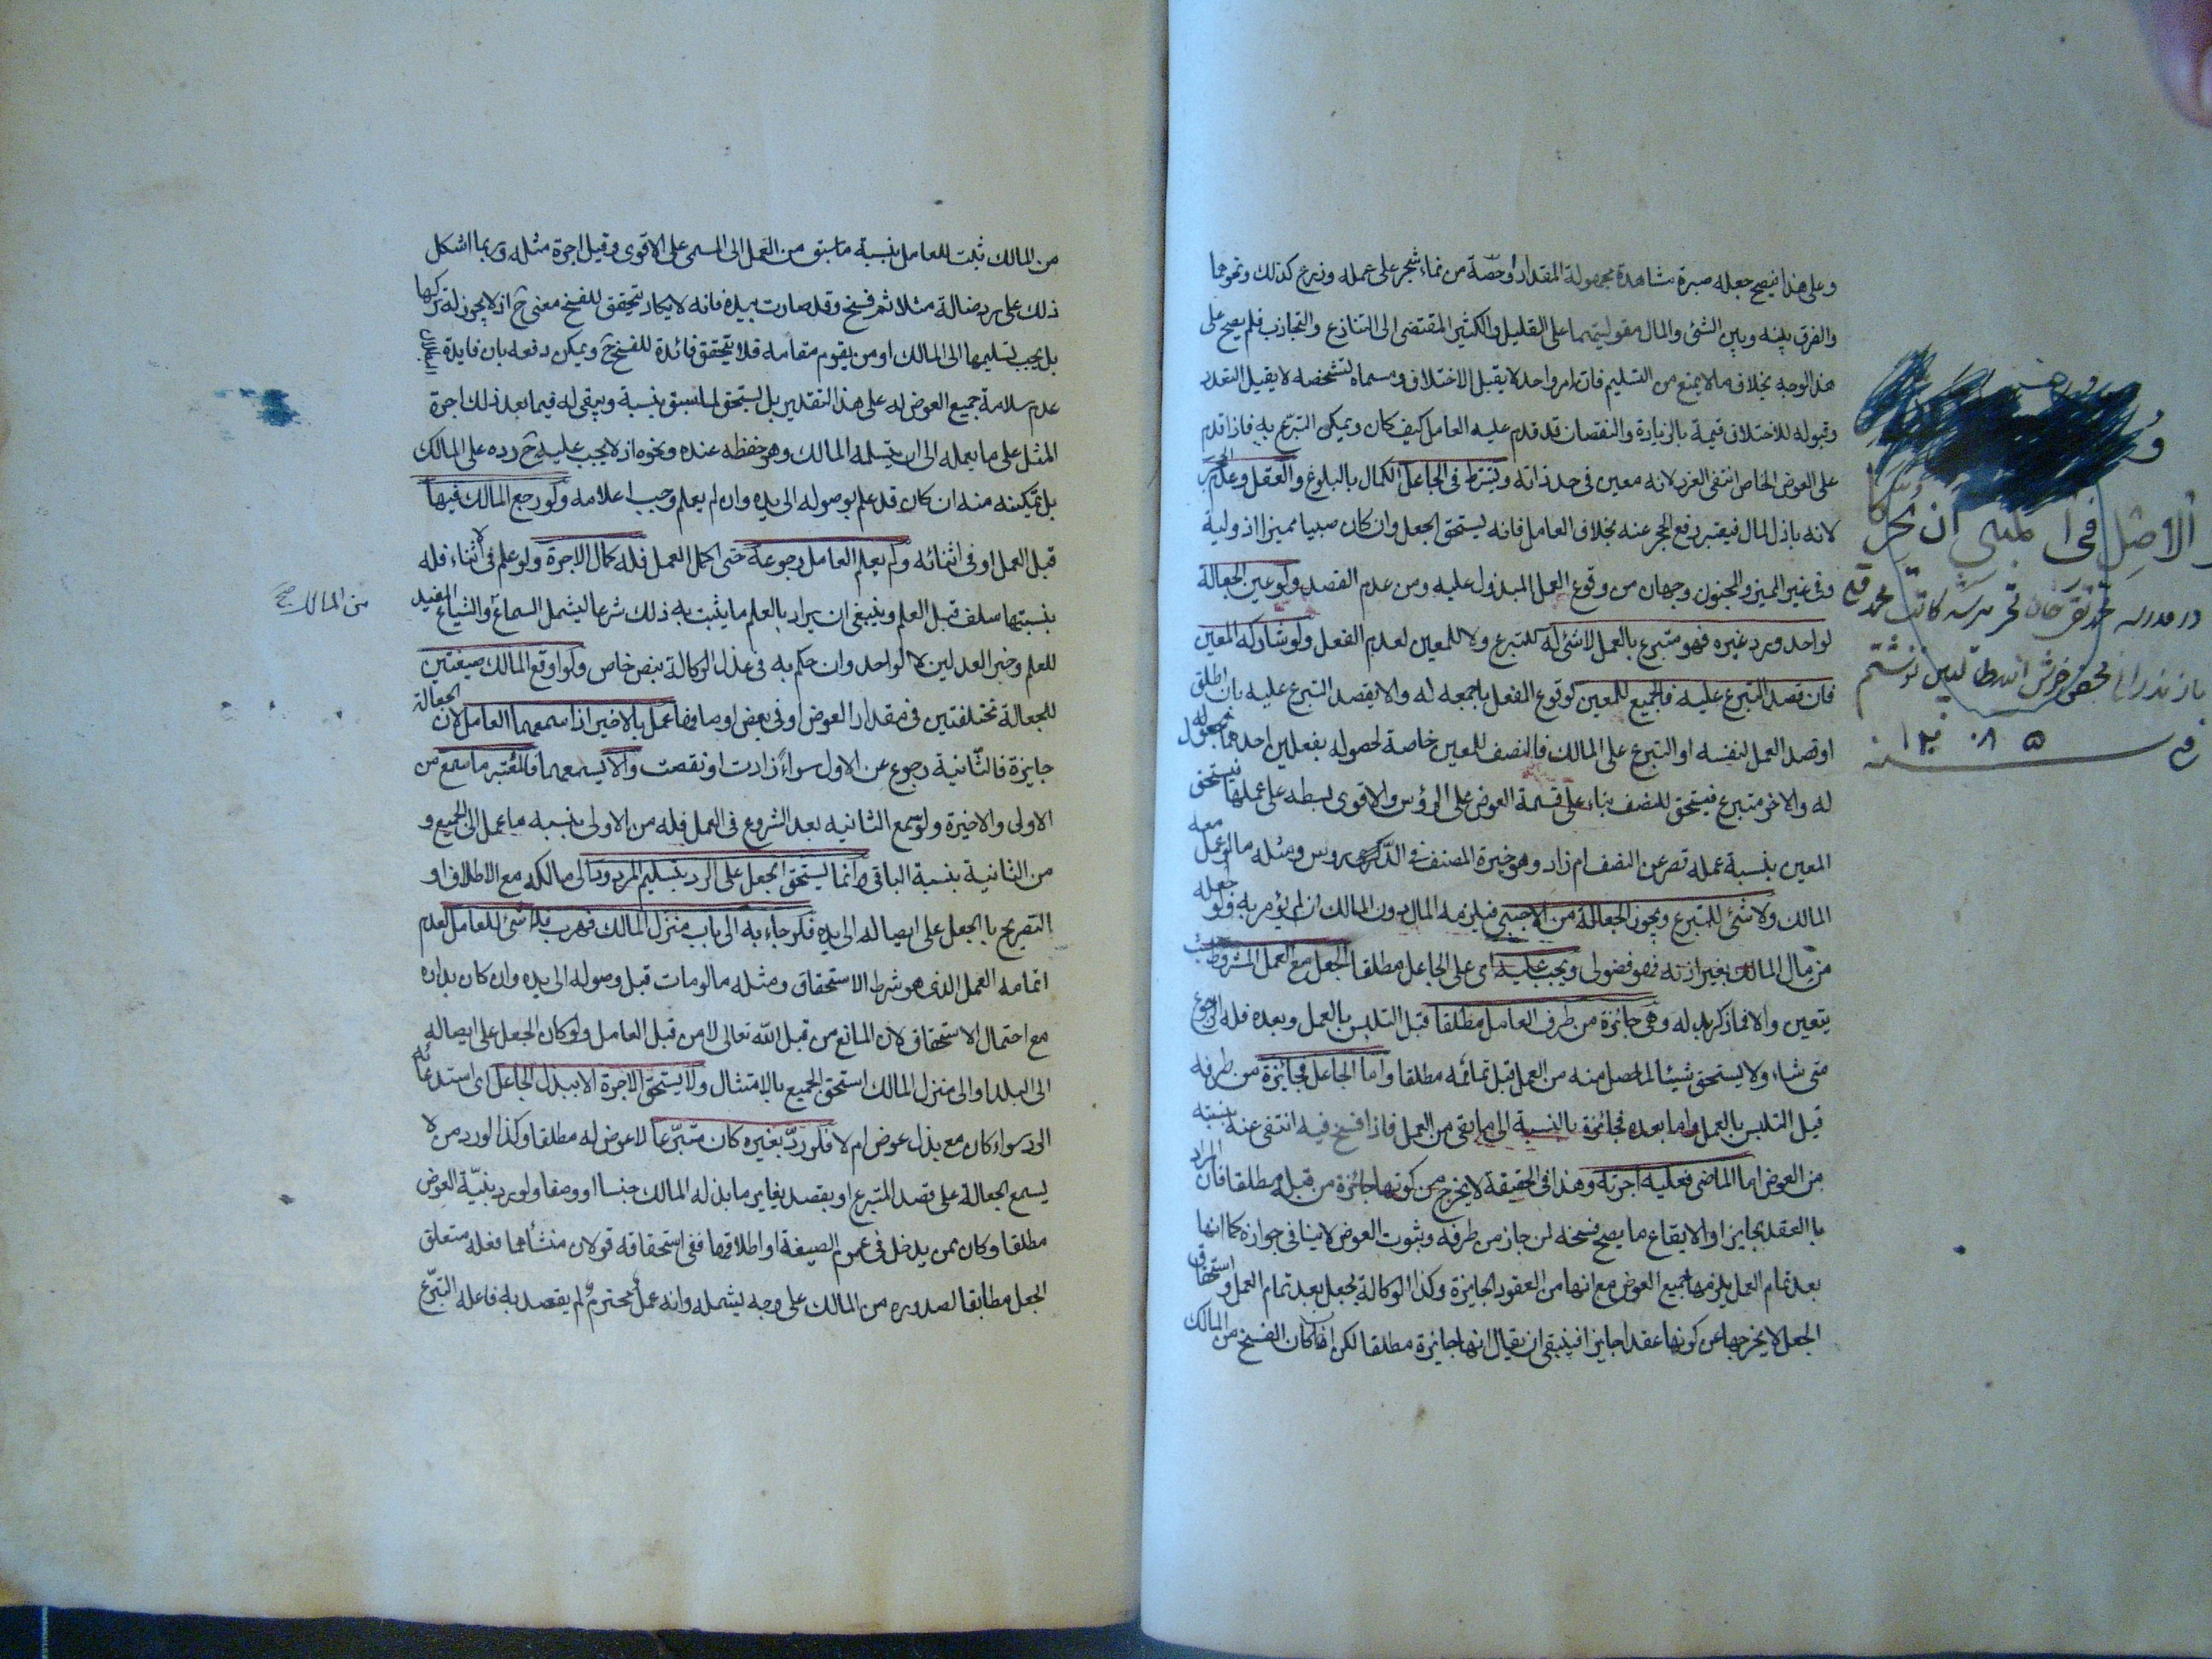 وعلى هذا فيصح جعله صبرة مشاهدة مجهولة المقدار او حصة من نماء شجر على عمله وزرع كذلك ونحوهما
والفرق بينه وبين الشئ والمال مقوليتهما على القليل والكثير المقتضى الى التنازع والتجاذب فلم يصح على
هذا الوجه بخلاف ما لا يمنع من التسليم فانه امر واحد لا يقبل الاختلاف ومسماه لتشخصه لا يقبل التعدد
وقبوله للاختلاف قيمة بالزيادة والنقصان قد قدم عليه العامل كيف كان ويمكن التبرع به فاذا قدم
على العوض الخاص انتفى الغرر لانه معين فى حد ذاته ويشترط فى الجاعل الكمال بالبلوغ والعقل وعدم الحجر
لانه باذل المال فيعتبر رفع الحجر عنه بخلاف العامل فانه يستحق الجعل وان كان صبيا مميزا اذ وليه
وفى غير المميز والمجنون وجهان من وقوع العمل المبذول عليه ومن عدم القصد ولو عين الجعالة
لواحد ورد غيره فهو متبرع بالعمل لا شئ له للتبرع ولا للمعين لعدم الفعل ولو شاركه المعين
فان قصد التبرع عليه فالجميع للمعين لوقوع الفعل باجمعه له والا يقصد التبرع عليه بان اطلق
او قصد العمل لنفسه او التبرع على المالك فالنصف للمعين خاصة لحصوله بفعلين احدهما مجعول له
له والاخر متبرع فيستحق النصف بناء على قسمة العوض على الرؤس والاقوى بسطه على عملهما فيستحق
المعين بنسبة عمله قصر عن النصف ام زاد وهو خيرة المصنف فى الدروس ومثله ما لو عمل معه
المالك ولا شئ للمتبرع ويجوز الجعالة من الاجنبى فيلزمه المال دون المالك ان لم يؤمر به ولو جعله
من مال المالك بغير اذنه فهو فضولى ويجب عليه اى على الجاعل مطلقا الجعل مع العمل المشروط حيث
يتعين والا فما ذكر بدله وهى جائزة من طرف العامل مطلقا قبل التلبس بالعمل وبعده فله الرجوع
متى شاء ولا يستحق شيئا لما حصل منه من العمل قبل تمامه مطلقا واما الجاعل فجائزة من طرفه
قبل التلبس بالعمل واما بعده فجائزة بالنسبة الى ما بقى من العمل فاذا فسخ فيه انتفى عنه بنسبته
من العوض اما الماضى فعليه اجرته وهذا فى الحقيقة لا يخرج من كونها جائزة من قبله مطلقا فان المراد
بالعقد الجايز او الايقاع ما يصح فسخه لمن جاز من طرفه وثبوت العوض لا ينافى جوازه كما انها
بعد تمام العمل يلزمها جميع العوض مع انها من العقود الجايزة وكذا الوكالة بجعل بعد تمام العمل واستحقاق
الجعل لا يخرجها عن كونها عقدا جايزا فينبغى ان يقال انها جائزة مطلقا لكن اذا كان الفسخ من المالك
در مدرسه محمد تقى خان
نوشتم
سنه
من المالك ثبت للعامل بنسبة ما سبق من العمل الى المسمى على الاقوى وقيل اجرة مثله وربما اشكل
ذلك على برد ضالة مثلا ثم فسخ وقد صارت بيده فانه لا يكاد يتحقق للفسخ معنى ح اذ لا يجوز له تركها
بل يجب تسليمها الى المالك او من يقوم مقامه فلا يتحقق فائدة للفسخ ح ويمكن دفعه بان فايدة
عدم سلامة جميع العوض له على هذا التقدير بل يستحق لما سبق بنسبة ويبقى له فيما بعد ذلك اجرة
المثل على ما يعمله الى ان يتسلمه المالك وهو حفظه عنده ونحوه اذ لا يجب عليه ح رده على المالك
بل تمكينه منه ان كان قد علم بوصوله الى يده وان لم يعلم وجب اعلامه ولو رجع المالك فيها
قبل العمل او فى اثنائه ولم يعلم العامل رجوعه حتى اكمل العمل فله كمال الاجرة ولو علم فى الاثناء فله
بنسبة ما سلف قبل العلم وينبغى ان يراد بالعلم ما يثبت به ذلك شرعا ليشمل السماع والشياع المفيد
للعلم وخبر العدلين لا الواحد وان حكم به فى عزل الوكالة بنص خاص ولو اوقع المالك صيغتين
للجعالة مختلفتين فى مقدار العوض او فى بعض اوصافها عمل بالاخير اذا سمعهما العامل لان الجعالة
جايزة فالثانية رجوع عن الاول سواء زادت او نقصت والا يسمعهما فالمعتبر ما سمع من
الاولى والاخيرة ولو سمع الثانية بعد الشروع فى العمل فله من الاولى بنسبة ما عمل الى الجميع و
من الثانية بنسبة الباقى وانما يستحق الجعل على الرد بتسليم المردود الى مالكه مع الاطلاق او
التصريح بالجعل على ايصاله الى يده فلو جاء به الى باب منزل المالك فهرب فلا شئ للعامل لعدم
اتمامه العمل الذى هو شرط الاستحقاق ومثله ما لو مات قبل وصوله الى يده وان كان بداره
مع احتمال الاستحقاق لان المانع من قبل الله تعالى لا من قبل العامل ولو كان الجعل على ايصاله
الى البلد او الى منزل المالك استحق الجميع بالامتثال ولا يستحق الاجرة الا ببذل الجاعل اى استدعائه
الرد سواء كان مع بذل عوض ام لا فلو رد بغيره كان متبرعا لا عوض له مطلقا وكذا لو رد من لا
يسمع الجعالة على قصد التبرع او بقصد يغاير ما بذله المالك جنسا او وصفا ولو رد بنية العوض
مطلقا وكان ممن يدخل فى عموم الصيغة او اطلاقها ففى استحقاقه قولان منشأهما فعله متعلق
الجعل مطابقا لصدوره من المالك على وجه يشمله وانه عمل محترم لم يقصد به فاعله التبرع
من المالك صح